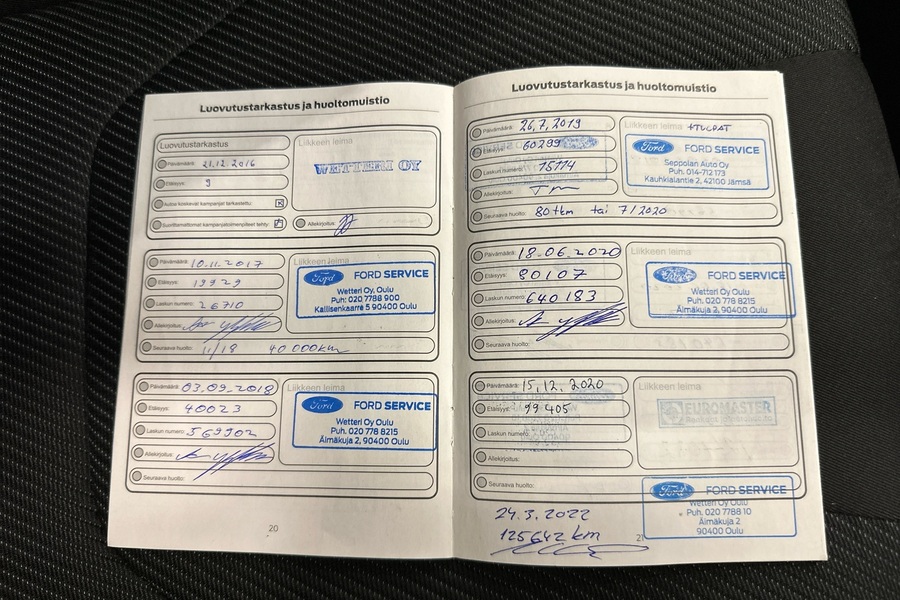 Luovutustarkastus ja huoltomuistio
Luovutustarkastus
Päivämäärä: 21.12.2016
Etäisyys: 9
Autoa koskevat kampanjat tarkastettu:
Suorittamattomat kampanjatoimenpiteet tehty:
WETTERI OY
Allekirjoitus:
Päivämäärä: 10.11.2017
Etäisyys: 19929
Laskun numero: 26710
Allekirjoitus:
Seuraava huolto: 11/18 40 000km
Liikkeen leima
Ford FORD SERVICE
Wetteri Oy, Oulu
Puh: 020 7788 900
Kallisenkaarre 5 90400 Oulu
Päivämäärä: 03.09.2018
Etäisyys: 40023
Laskun numero: 569902
Allekirjoitus:
Seuraava huolto:
Liikkeen leima
Ford FORD SERVICE
Wetteri Oy, Oulu
Puh. 020 778 8215
Älmäkuja 2, 90400 Oulu
20
Luovutustarkastus ja huoltomuistio
Päivämäärä: 26.7.2019
Etäisyys: 60299
Laskun numero: 15774
Allekirjoitus:
Seuraava huolto: 80tkm tai 7/2020
Liikkeen leima +TULPAT
Ford FORD SERVICE
Seppolan Auto Oy
Puh. 014-712 173
Kauhkialantie 2, 42100 Jämsä
Päivämäärä: 18.06.2020
Etäisyys: 80107
Laskun numero: 640183
Allekirjoitus:
Seuraava huolto:
Liikkeen leima
Ford FORD SERVICE
Wetteri Oy, Oulu
Puh. 020 778 8215
Älmäkuja 2, 90400 Oulu
Päivämäärä: 15.12.2020
Etäisyys: 99405
Laskun numero:
Allekirjoitus:
Seuraava huolto:
Liikkeen leima
EUROMASTER
Ford FORD SERVICE
Wetteri Oy Oulu
Puh. 020 7788 10
Älmäkuja 2
90400 Oulu
24.3.2022
125642 km